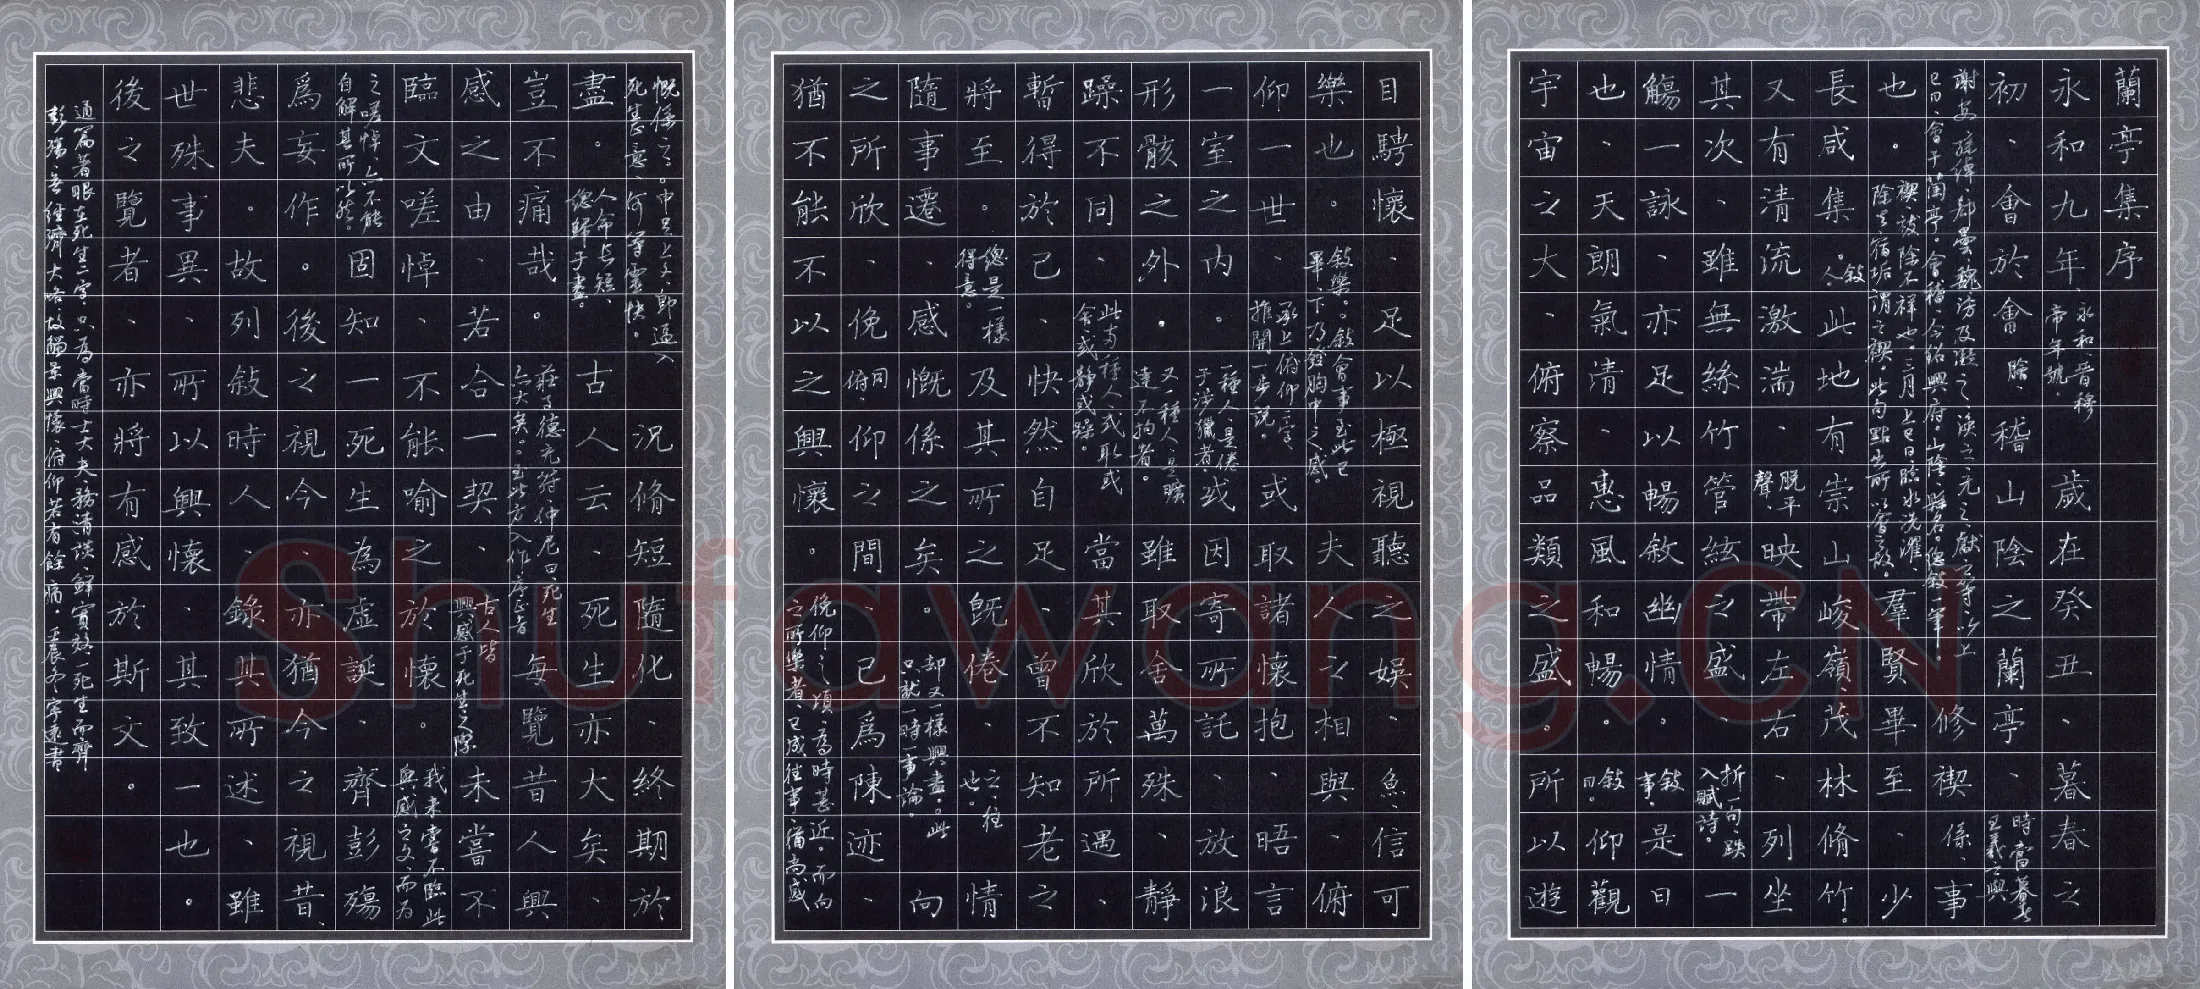 蘭亭集序
永和九年、永和、晉穆帝年號。歲在癸丑、暮春之
初、會於會稽山陰之蘭亭、時當暮春王羲之與
謝安、孫綽、郗曇、魏滂及凝之、渙之、元之、獻之等以上
巳日、會于蘭亭。會稽、今紹興府。山陰、縣名。總敘一筆。修禊係、事
也。禊祓除不祥也。三月上巳日、臨水洗濯、除去宿垢謂之禊。此句點出所以會之故。羣賢畢至、少
長咸集。敘人。此地有崇山峻嶺、茂林脩竹。
又有清流激湍、脫平聲。映帶左右、列坐
其次、雖無絲竹管絃之盛、折一句、跌入賦詩。一
觴一詠、亦足以暢敘幽情。敘事。是日
也、天朗氣清、惠風和暢。敘日。仰觀
宇宙之大、俯察品類之盛。所以遊
目騁懷、足以極視聽之娛、魚、信可
樂也、敘樂。敘會事至此已畢、下乃發胸中之感。夫人之相與、俯
仰一世、承上俯仰二字、推開一步說。或取諸懷抱、晤言
一室之內。一種人是倦于涉獵者、或因寄所託、放浪
形骸之外。又一種人是曠達不拘者。雖取舍萬殊、靜
躁不同、此兩種人、或取或舍、或靜或躁。當其欣於所遇、
暫得於己、快然自足、曾不知老之
將至。總是一樣得意。及其所之既倦、之、往也。情
隨事遷、感慨係之矣。却又一樣興盡。此只就一時一事論。向
之所欣、俛同俯、仰之間、已爲陳迹、
猶不能不以之興懷。俛仰之頃、爲時甚近。而向之所樂者、已成往事、猶尚感
慨係之。中只上文、即逼入死甚意、何等靈快。況脩短隨化、終期於
盡。人命長短、總歸于盡。古人云、死生亦大矣、
豈不痛哉。莊子德充符、仲尼曰、死生亦大矣。至此方入作序正旨每覽昔人興
感之由、若合一契、古人皆興感于死生之際未嘗不
臨文嗟悼、不能喻之於懷。我未嘗不臨此興感之文、而爲
之嗟悼、亦不能自解其所以然。固知一死生為虛誕、齊彭殤
爲妄作。後之視今、亦猶今之視昔、
悲夫。故列敍時人、錄其所述、雖
世殊事異、所以興懷、其致一也。
後之覽者、亦將有感於斯文。
通篇著眼在死生二字。只為當時士大夫、務清談、鮮實效、一死生而齊
彭殤、無經濟大略、故觸景興懷、俯仰若有餘痛。壬辰冬寧遠書
Shufawang.CN